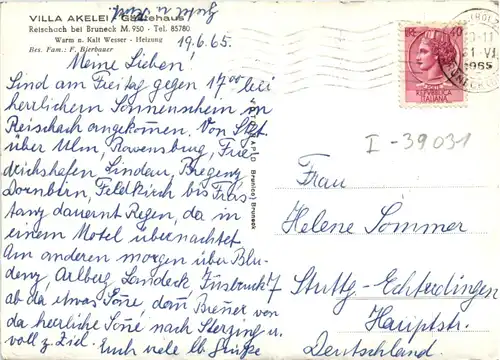 Gretel u. Paul.
VILLA AKELEI Gästehaus
Reischach bei Bruneck M. 950 - Tel. 85780
Warm u. Kalt Wesser - Heizung
Bes. Fam.: F. Bierbauer
19.6.65.
Meine Lieben!
Sind am Freitag gegen 17⁰⁰ bei
herrlichem Sonnenschein im
Reischach angekommen. Von Stgt
über Ulm, Ravensburg, Frie
drichshafen Lindau, Bregenz
Dornbirn, Feldkirch bis Fras
tanz dauernt Regen, da in
einem Motel übernachtet
Am anderen morgen über Blu
denz, Arlberg Landeck Innsbruck
ab da etwas Sonne dann Brenner von
da herrliche Sonne nach Sterzing u.
voll z. Ziel. Euch viele lb. Grüße
Brunico) Bruneck
LIRE 40
REPUBBLICA
ITALIANA
1965
I-39031
Frau
Helene Sommer
7 Stuttg-Echterdingen
Hauptstr.
Deutschland.